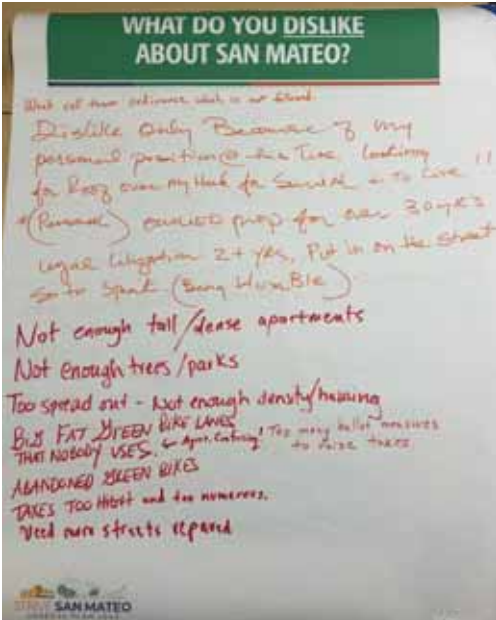 WHAT DO YOU DISLIKE
ABOUT SAN MATEO?
ordinance what is not
Dislike Only Because of my
personal position @ this Time. Looking
for Roof over my Head for to Live !!
(Personal) owned prop for over 30 yrs
Legal Litigation 2+ yrs, Put in on the Street
So to Speak (Being Humble)
Not enough tall/dense apartments
Not enough trees/parks
Too spread out - Not enough density/housing
BIG FAT GREEN BIKE LANES
THAT NOBODY USES. & Confusing! Too many ballot measures
to raise taxes
ABANDONED GREEN BIKES
TAXES TOO HIGH and too numerous.
Need more streets repaved
STRIVE SAN MATEO